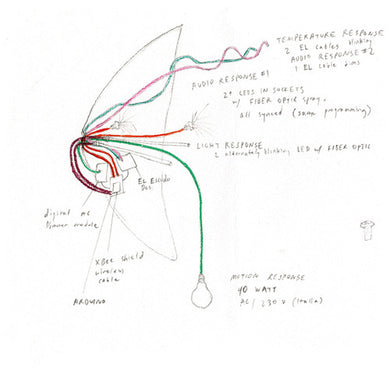 TEMPERATURE RESPONSE
2 EL cables blinking
AUDIO RESPONSE #2
1 EL cable dims
AUDIO RESPONSE #1
LEDS IN SOCKETS
w/ FIBER OPTIC spray.
all synced (same programming)
LIGHT RESPONSE
2 alternately blinking LED w/ FIBER OPTIC
EL Escudo
Dos.
digital mc
Power module
XBee shield
wireless
cable
ARDUINO
MOTION RESPONSE
40 WATT
AC/ 230 V